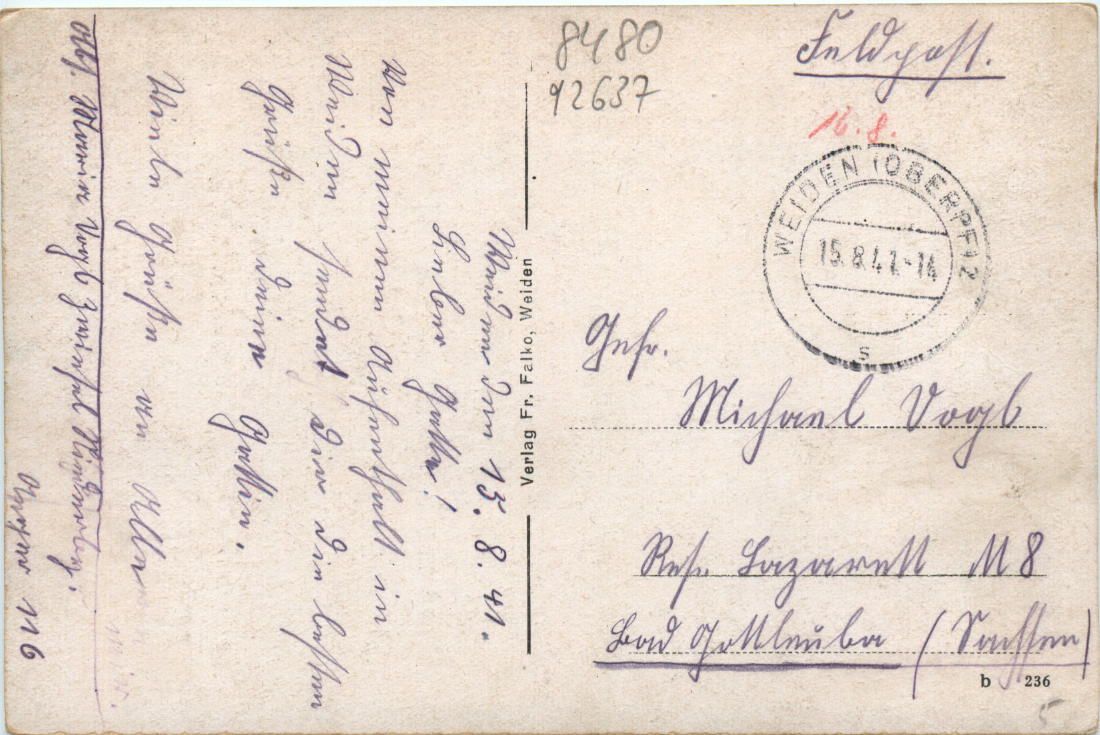 Weiden den 15. 8. 41.
Lieber Gatte!
Von meinem Aufenthalt in
Weiden sendet dir die besten
Grüße deine Gattin.
Viele Grüße von Allen
Abs. Maria Vogl
116
Verlag Fr. Falko, Weiden
8480
92637
Feldpost.
16. 8.
WEIDEN (OBERPF) 2
15.8.41-14
s
Gefr.
Michael Vogl
Res. Lazarett M 8
Bad Gottleuba (Sachsen)
b 236
5